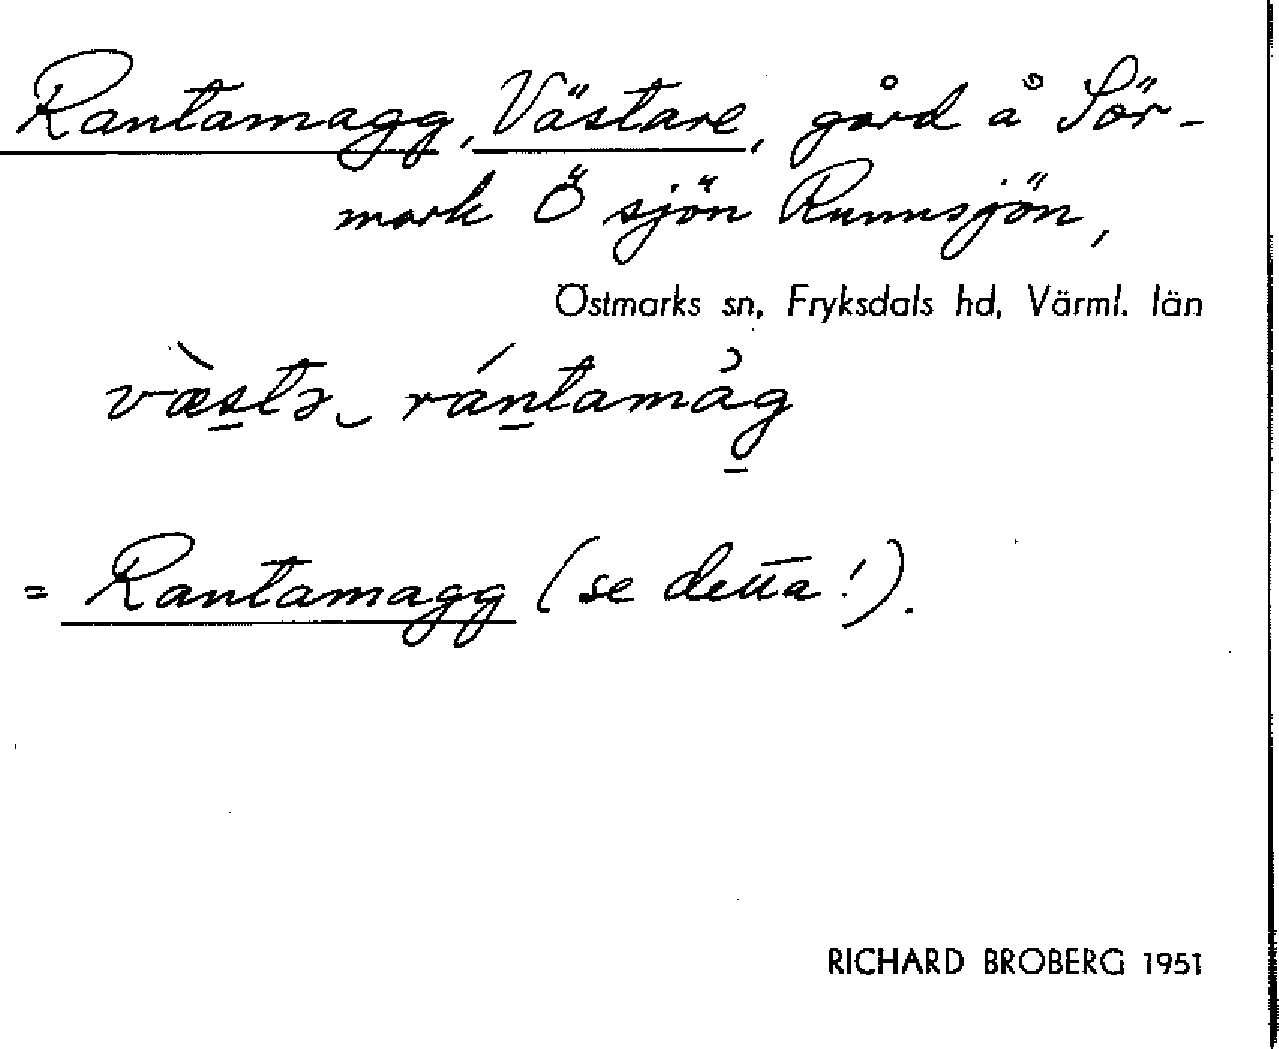 Rantamagg, Västare, gård å Sör-
mark Ö sjön Runnsjön,
Östmarks sn, Fryksdals hd, Värml. län
væ̀stə‿ rántamåg
= Rantamagg (se detta!).
RICHARD BROBERG 1951